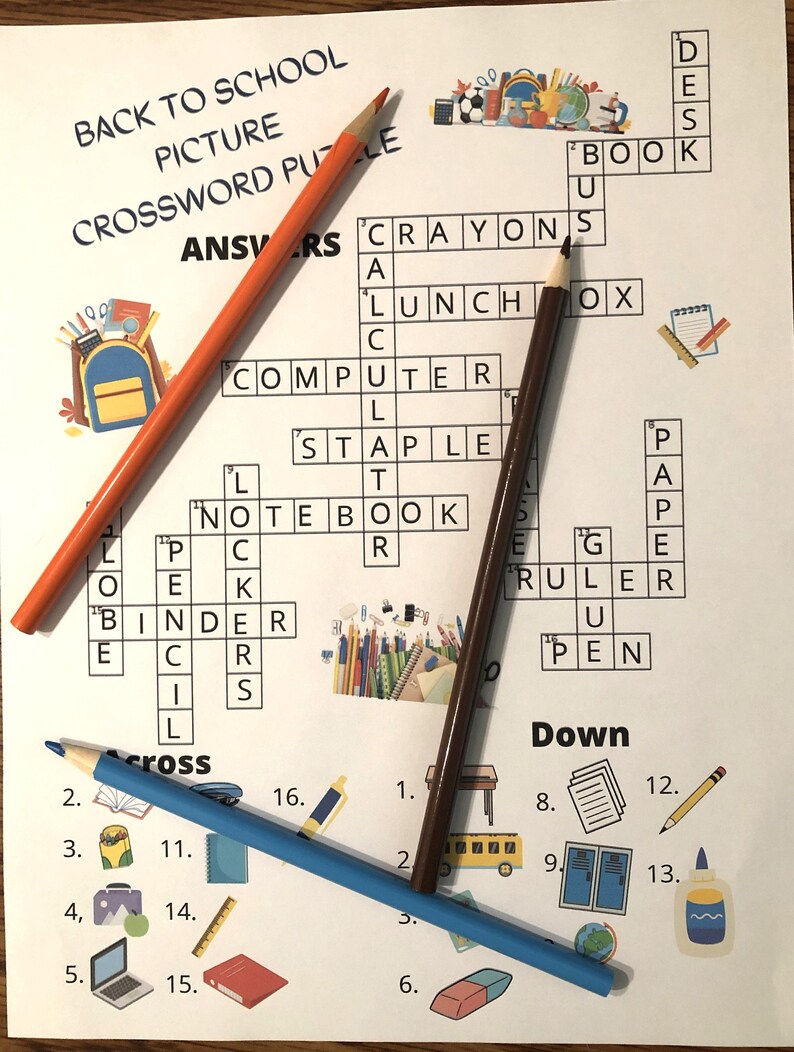 BACK TO SCHOOL
PICTURE
CROSSWORD
ANSWERS
1 DESK
2 BOOK
BUS
3 CRAYONS
CALCULATOR
4 LUNCH OX
5 COMPUTER
6
7 STAPLE
8 PAPER
9 LOCKERS
11 NOTEBOOK
GLOBE
12 PENCIL
13 GLUE
14 RULER
15 BINDER
16 PEN
Across
2.
3.
4,
5.
11.
14.
15.
16.
Down
1.
2.
3.
6.
8.
9.
12.
13.